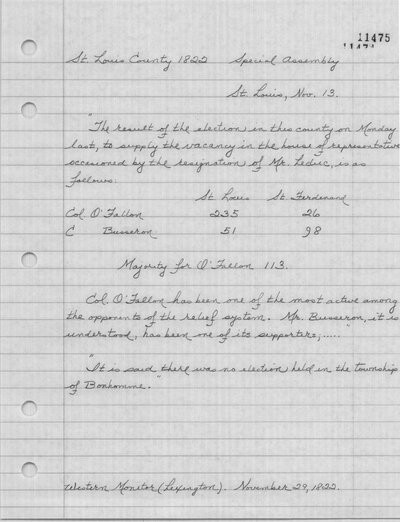 11475
11474
St. Louis County 1822 Special Assembly
St. Louis, Nov. 13.
"The result of the election in this county on Monday
last, to supply the vacancy in the house of representatives
occesioned by the resignation of Mr. Leduc, is as
follows:
St Louis St. Ferdinand
Col O'Fallon 235 26
C Busseron 51 98
Majority for O'Fallon 113.
Col. O'Fallon has been one of the most active among
the opponents of the relief system. Mr. Busseron, it is
understood, has been one of its supporters,.....
"It is said there was no election held in the township
of Bonhomme."
Western Monitor (Lexington). November 29, 1822.